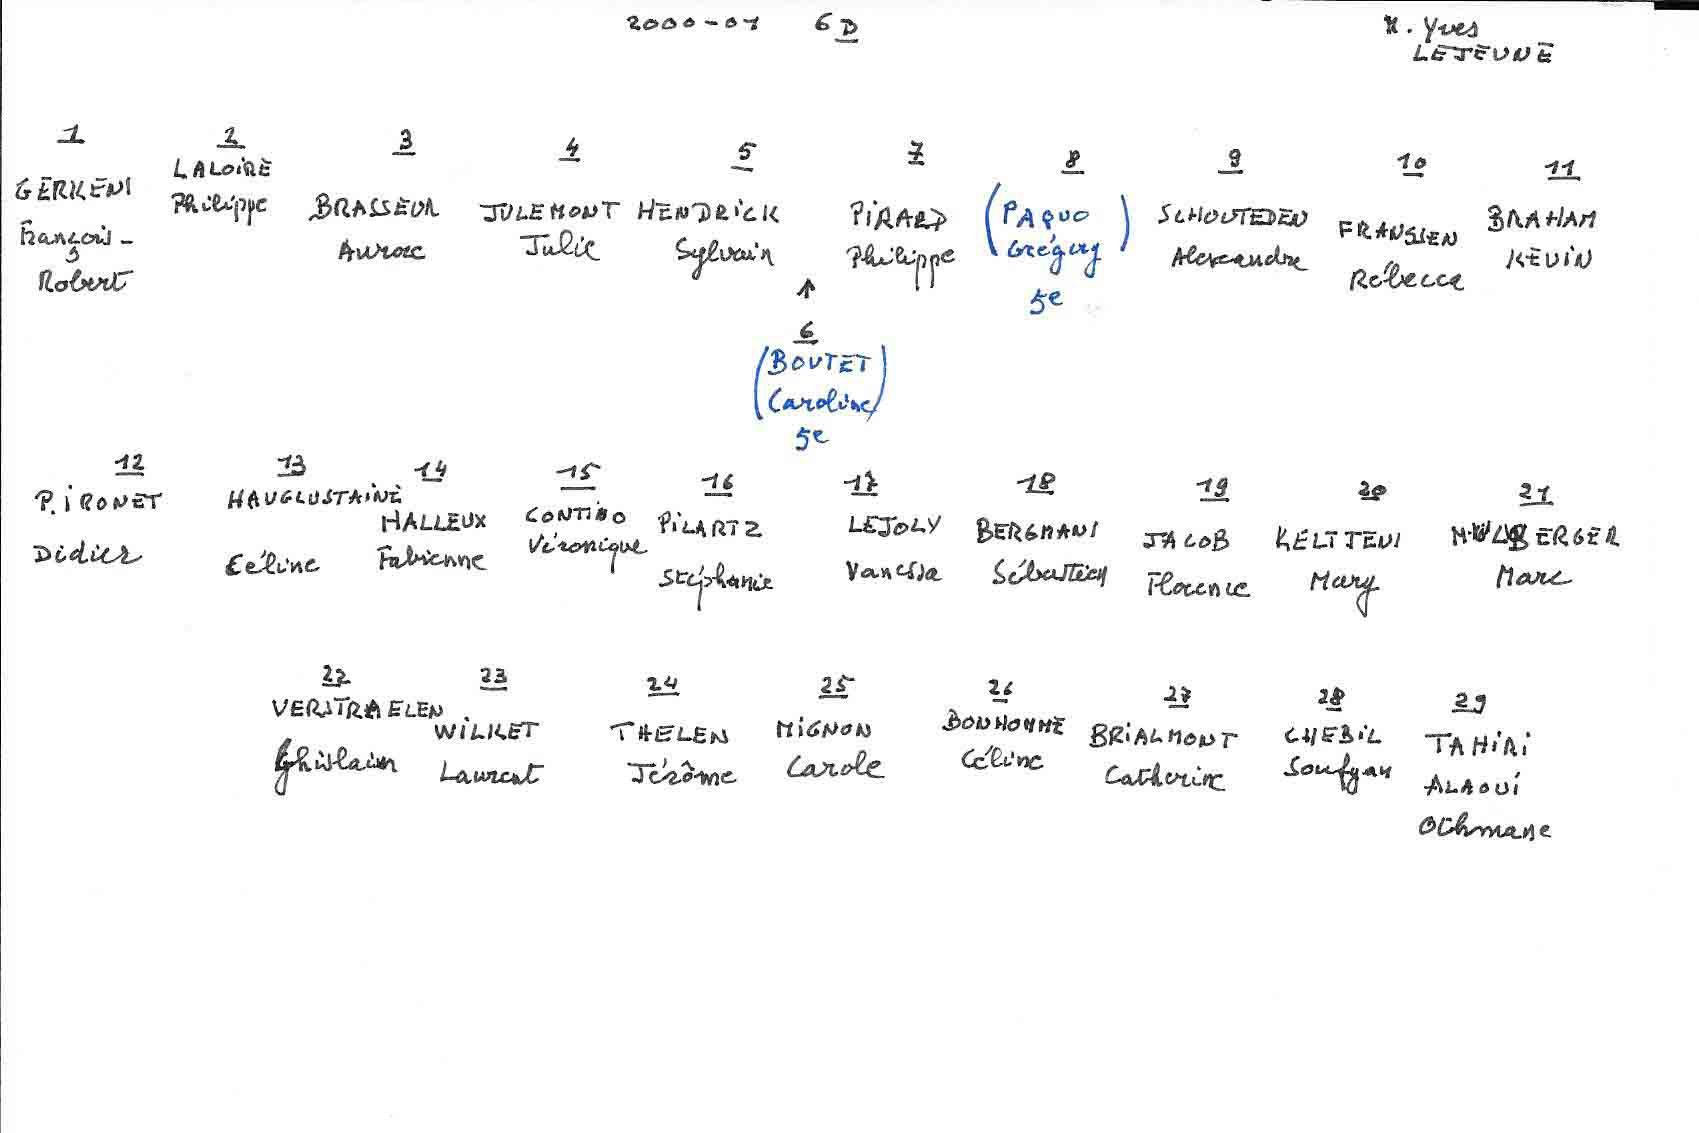 2000-01 6D
M. Yves
LEJEUNE
1 2 3 4 5 7 8 9 10 11
GERKENS
François-
Robert
LALOIRE
Philippe
BRASSEUR
Aurore
JULEMONT
Julie
HENDRICK
Sylvain
PIRARD
Philippe
(PAQUO
Grégory)
5e
SCHOUTEDEN
Alexandre
FRANSSEN
Rébecca
BRAHAM
KEVIN
↑
6
(BOUTET
Caroline)
5e
12 13 14 15 16 17 18 19 20 21
PIRONET
Didier
HAUGLUSTAINE
Céline
HALLEUX
Fabienne
CONTINO
Véronique
PILARTZ
Stéphanie
LEJOLY
Vanessa
BERGMANS
Sébastien
JACOB
Florence
KELTJENS
Mary
Marc
22 23 24 25 26 27 28 29
VERSTRAELEN
Ghislain
WILKET
Laurent
THELEN
Jérôme
MIGNON
Carole
BONHOMME
Céline
BRIALMONT
Catherine
CHEBIL
Soufyan
TAHIRI
ALAOUI
Othmane